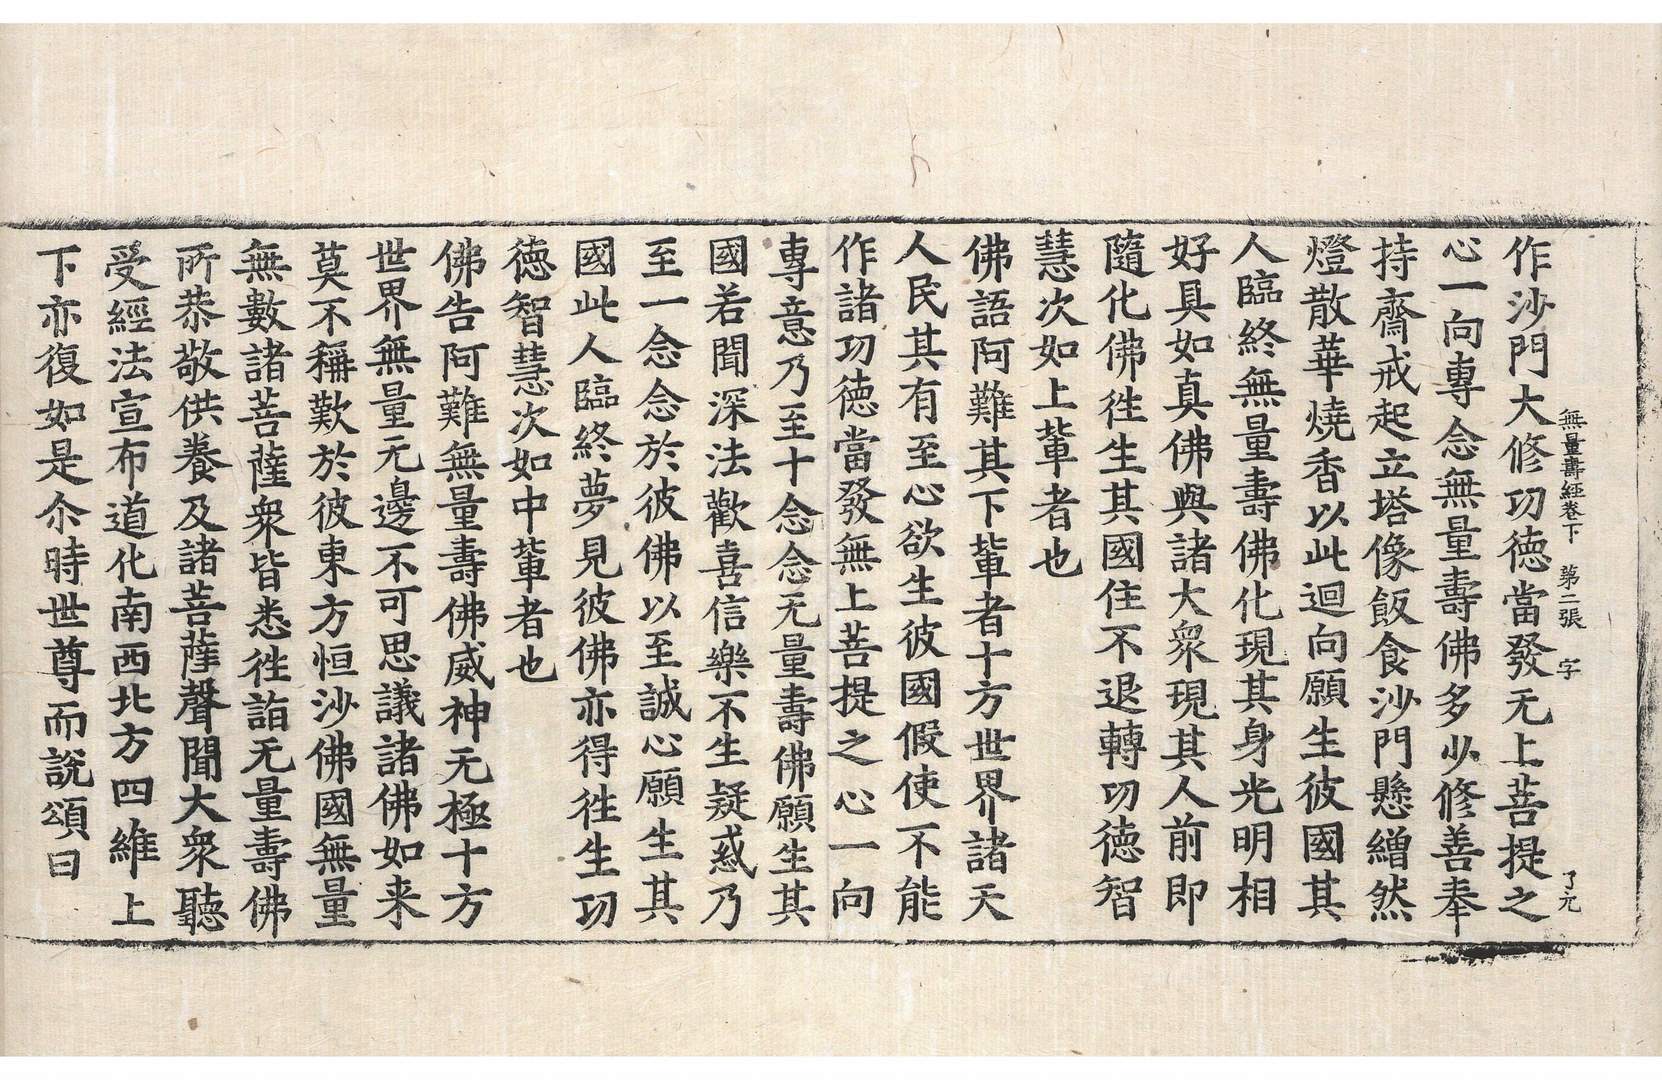 無量壽經卷下　第二張　字　了元
作沙門大修功德當發无上菩提之
心一向專念無量壽佛多少修善奉
持齋戒起立塔像飯食沙門懸繒然
燈散華燒香以此迴向願生彼國其
人臨終無量壽佛化現其身光明相
好具如真佛與諸大衆現其人前即
隨化佛徃生其國住不退轉功德智
慧次如上軰者也
佛語阿難其下軰者十方世界諸天
人民其有至心欲生彼國假使不能
作諸功德當發無上菩提之心一向
專意乃至十念念无量壽佛願生其
國若聞深法歡喜信樂不生疑惑乃
至一念念於彼佛以至誠心願生其
國此人臨終夢見彼佛亦得徃生功
德智慧次如中軰者也
佛告阿難無量壽佛威神无極十方
世界無量无邊不可思議諸佛如来
莫不稱歎於彼東方恒沙佛國無量
無數諸菩薩衆皆悉徃詣无量壽佛
所恭敬供養及諸菩薩聲聞大衆聽
受經法宣布道化南西北方四維上
下亦復如是尒時世尊而說頌曰